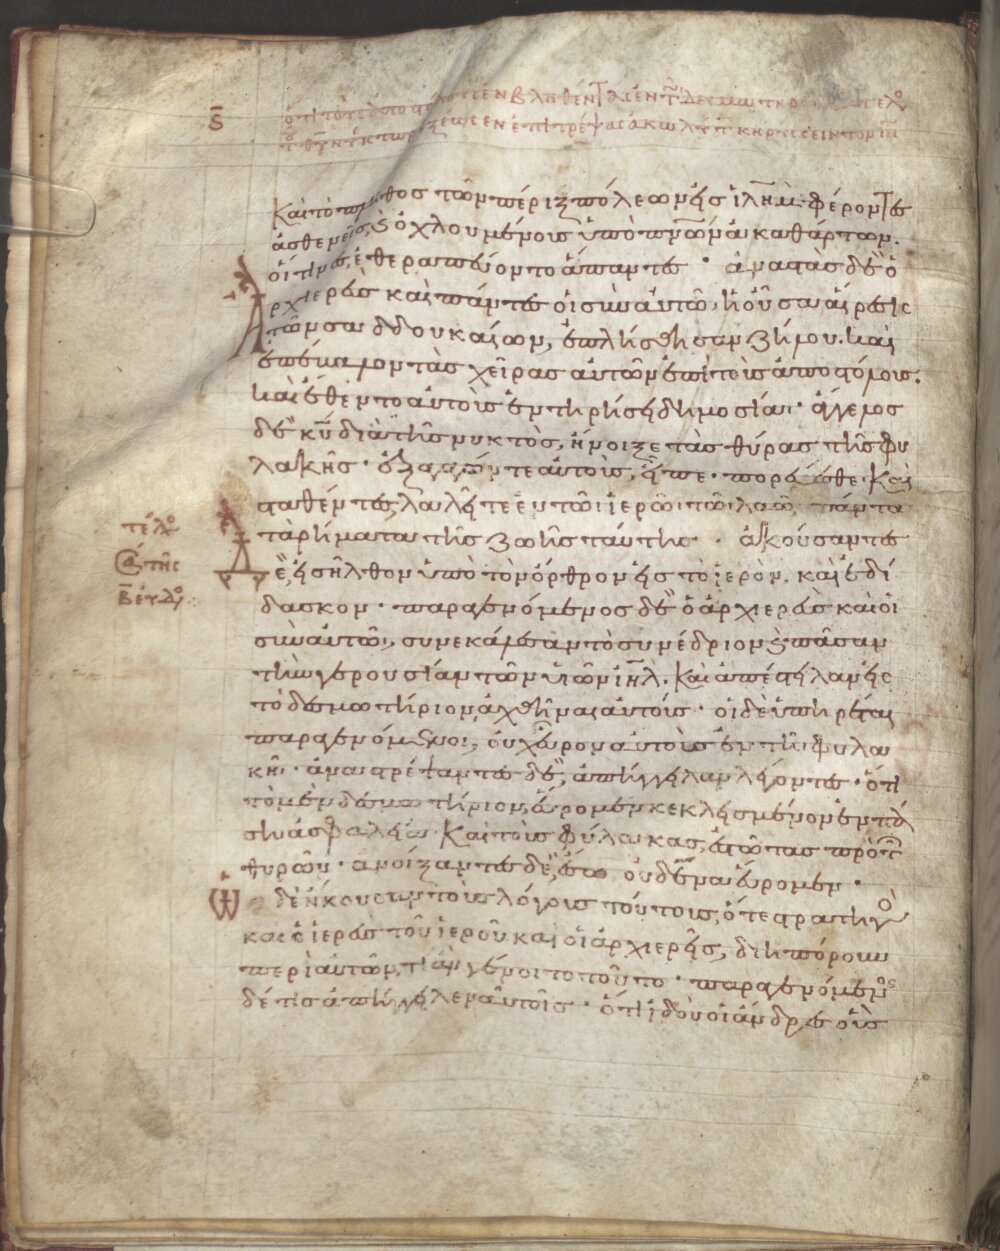 ς̅
ὅτι τοὺς ἀποστόλους ἐμβληθέντας ἐν τῷ δεσμωτηρίῳ ἄγγελος
κυ θύραν νύκτωρ ἐξέωσεν ἐπιτρέψας ἀκωλύτως κηρύσσειν τὸν ιν
Καὶ τὸ πλῆθος τῶν πέριξ πόλεων εἰς ἱλη̅μ· φέροντες
ἀσθενεῖς, καὶ ὀχλουμένους ὑπὸ πνων ἀκαθάρτων.
οἵτινες ἐθεραπεύοντο ἅπαντες · ἀναστὰς δὲ ὁ
ἀρχιερεὺς καὶ πάντες οἱ σὺν αὐτῶ, ἡ οὖσα αἵρεσις
τῶν σαδδουκαίων, ἐπλήσθησαν ζήλου. καὶ
ἐπέβαλον τὰς χεῖρας αὐτῶν ἐπὶ τοὺς ἀποστόλους.
καὶ ἔθεντο αὐτοὺς ἐν τηρήσει δημοσία · ἄγγελος
δὲ κυ̅ διὰ τῆς νυκτὸς, ἤνοιξε τὰς θύρας τῆς φυ
λακῆς · ἐξαγαγών τε αὐτοὺς, εἶπε · πορεύεσθε · Καὶ
σταθέντες, λαλεῖτε ἐν τῶ ἱερῶ τῶ λαῶ πάντα
τὰ ῥήματα τῆς ζωῆς ταύτης · ἀκούσαντες
τέλος
δὲ, εἰσῆλθον ὑπὸ τὸν ὄρθρον εἰς τὸ ἱερὸν. καὶ ἐδί
τῆς
β̅ ἑυδο
δασκον · παραγενόμενος δὲ ὁ ἀρχιερεὺς καὶ οἱ
σὺν αὐτῶ, συνεκάλεσαν τὸ συνέδριον καὶ πᾶσαν
τὴν γερουσίαν τῶν υἱῶν ιη̅λ. Καὶ ἀπέστειλαν εἰς
τὸ δεσμωτήριον, ἀχθῆναι αὐτούς · οἱ δὲ ὑπηρέται
παραγενόμενοι, οὐχ εὗρον αὐτοὺς ἐν τῆ φυλα
κῆ · ἀναστρέψαντες δὲ, ἀπήγγειλαν λέγοντες · ὅτι
τὸ μὲν δεσμωτήριον, εὕρομεν κεκλεισμένον ἐν πά
σῃ ἀσφαλεία Καὶ τοὺς φύλακας, ἑστῶτας πρὸ τῶν
θυρῶν · ἀνοίξαντες δὲ, ἔσω οὐδένα εὕρομεν ·
Ὡς δὲ ἤκουσαν τοὺς λόγους τούτους, ὅ τε στρατηγὸς
καὶ ὁ ἱερεὺς τοῦ ἱεροῦ καὶ οἱ ἀρχιερεῖς, διηπόρουν
περὶ αὐτῶν, τί ἂν γένοιτο τοῦτο · παραγενόμενος
δέ τις ἀπήγγειλεν αὐτοῖς · ὅτι ἰδοὺ οἱ ἄνδρες οὓς